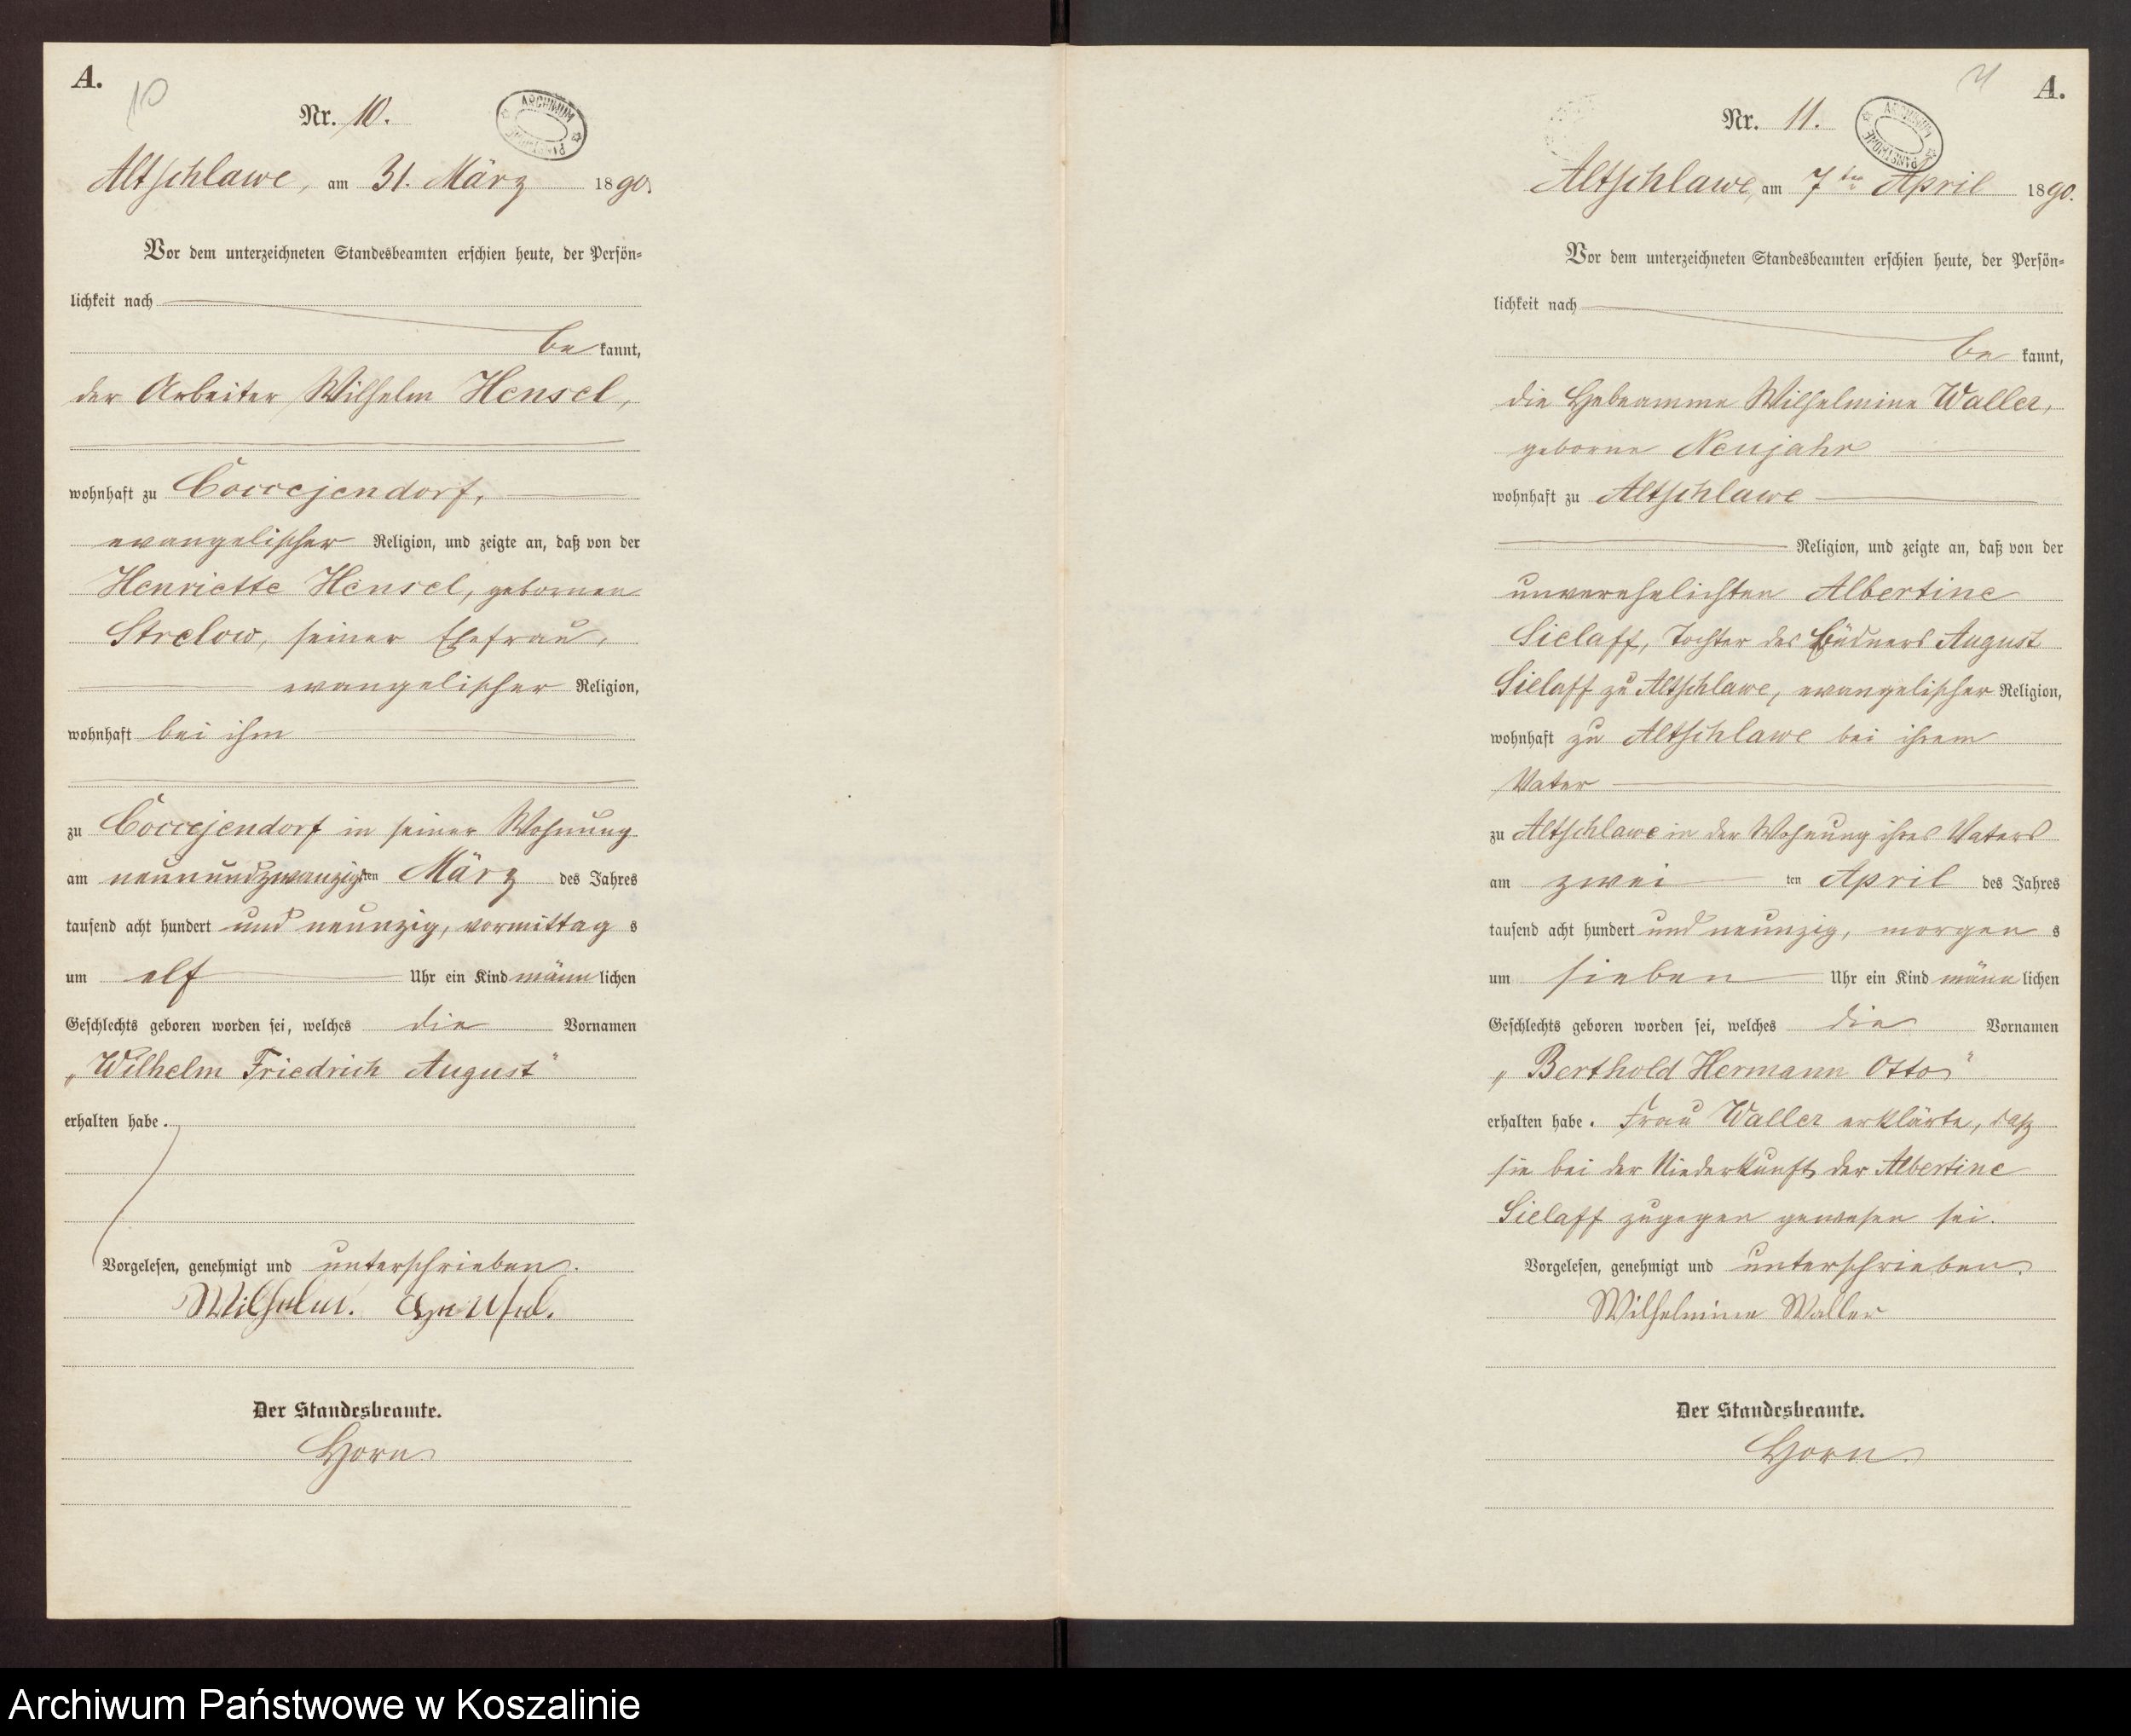 A.
10
Nr. 10.
ARCHIWUM PAŃSTWOWE
Altschlawe, am 31. März 1890.
Vor dem unterzeichneten Standesbeamten erschien heute, der Persön=
lichkeit nach
be kannt,
der Arbeiter Wilhelm Hensel,
wohnhaft zu Coccejendorf,
evangelischer Religion, und zeigte an, daß von der
Henriette Hensel, gebornen
Strelow, seiner Ehefrau,
evangelischer Religion,
wohnhaft bei ihm
zu Coccejendorf in seiner Wohnung
am neunundzwanzigsten März des Jahres
tausend acht hundert und neunzig, vormittag s
um elf Uhr ein Kind männ lichen
Geschlechts geboren worden sei, welches die Vornamen
„Wilhelm Friedrich August“
erhalten habe.
Vorgelesen, genehmigt und unterschrieben.
Wilhelm. Hensel.
Der Standesbeamte.
Horn
A.
Nr. 11.
ARCHIWUM PAŃSTWOWE
Altschlawe, am 7ten April 1890.
Vor dem unterzeichneten Standesbeamten erschien heute, der Persön=
lichkeit nach
be kannt,
die Hebeamme Wilhelmine Waller,
geborne Neujahr
wohnhaft zu Altschlawe
Religion, und zeigte an, daß von der
unverehelichten Albertine
Sielaff, Tochter des Büdners August
Sielaff zu Altschlawe, evangelischer Religion,
wohnhaft zu Altschlawe bei ihrem
Vater
zu Altschlawe in der Wohnung ihres Vaters
am zwei ten April des Jahres
tausend acht hundert und neunzig, morgen s
um sieben Uhr ein Kind männ lichen
Geschlechts geboren worden sei, welches die Vornamen
„Berthold Hermann Otto“
erhalten habe. Frau Waller erklärte, daß
sie bei der Niederkunft der Albertine
Sielaff zugegen gewesen sei.
Vorgelesen, genehmigt und unterschrieben.
Wilhelmine Waller
Der Standesbeamte.
Horn.
Archiwum Państwowe w Koszalinie